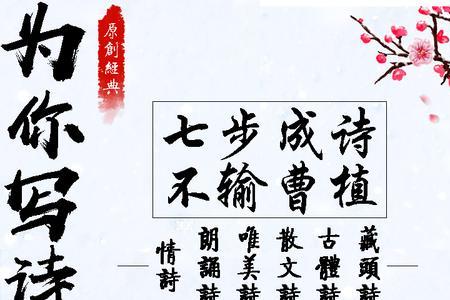 为你写诗
原創經典
七步成诗
不输曹植
藏頭詩
古體詩
散文詩
唯美詩
朗誦詩
情詩